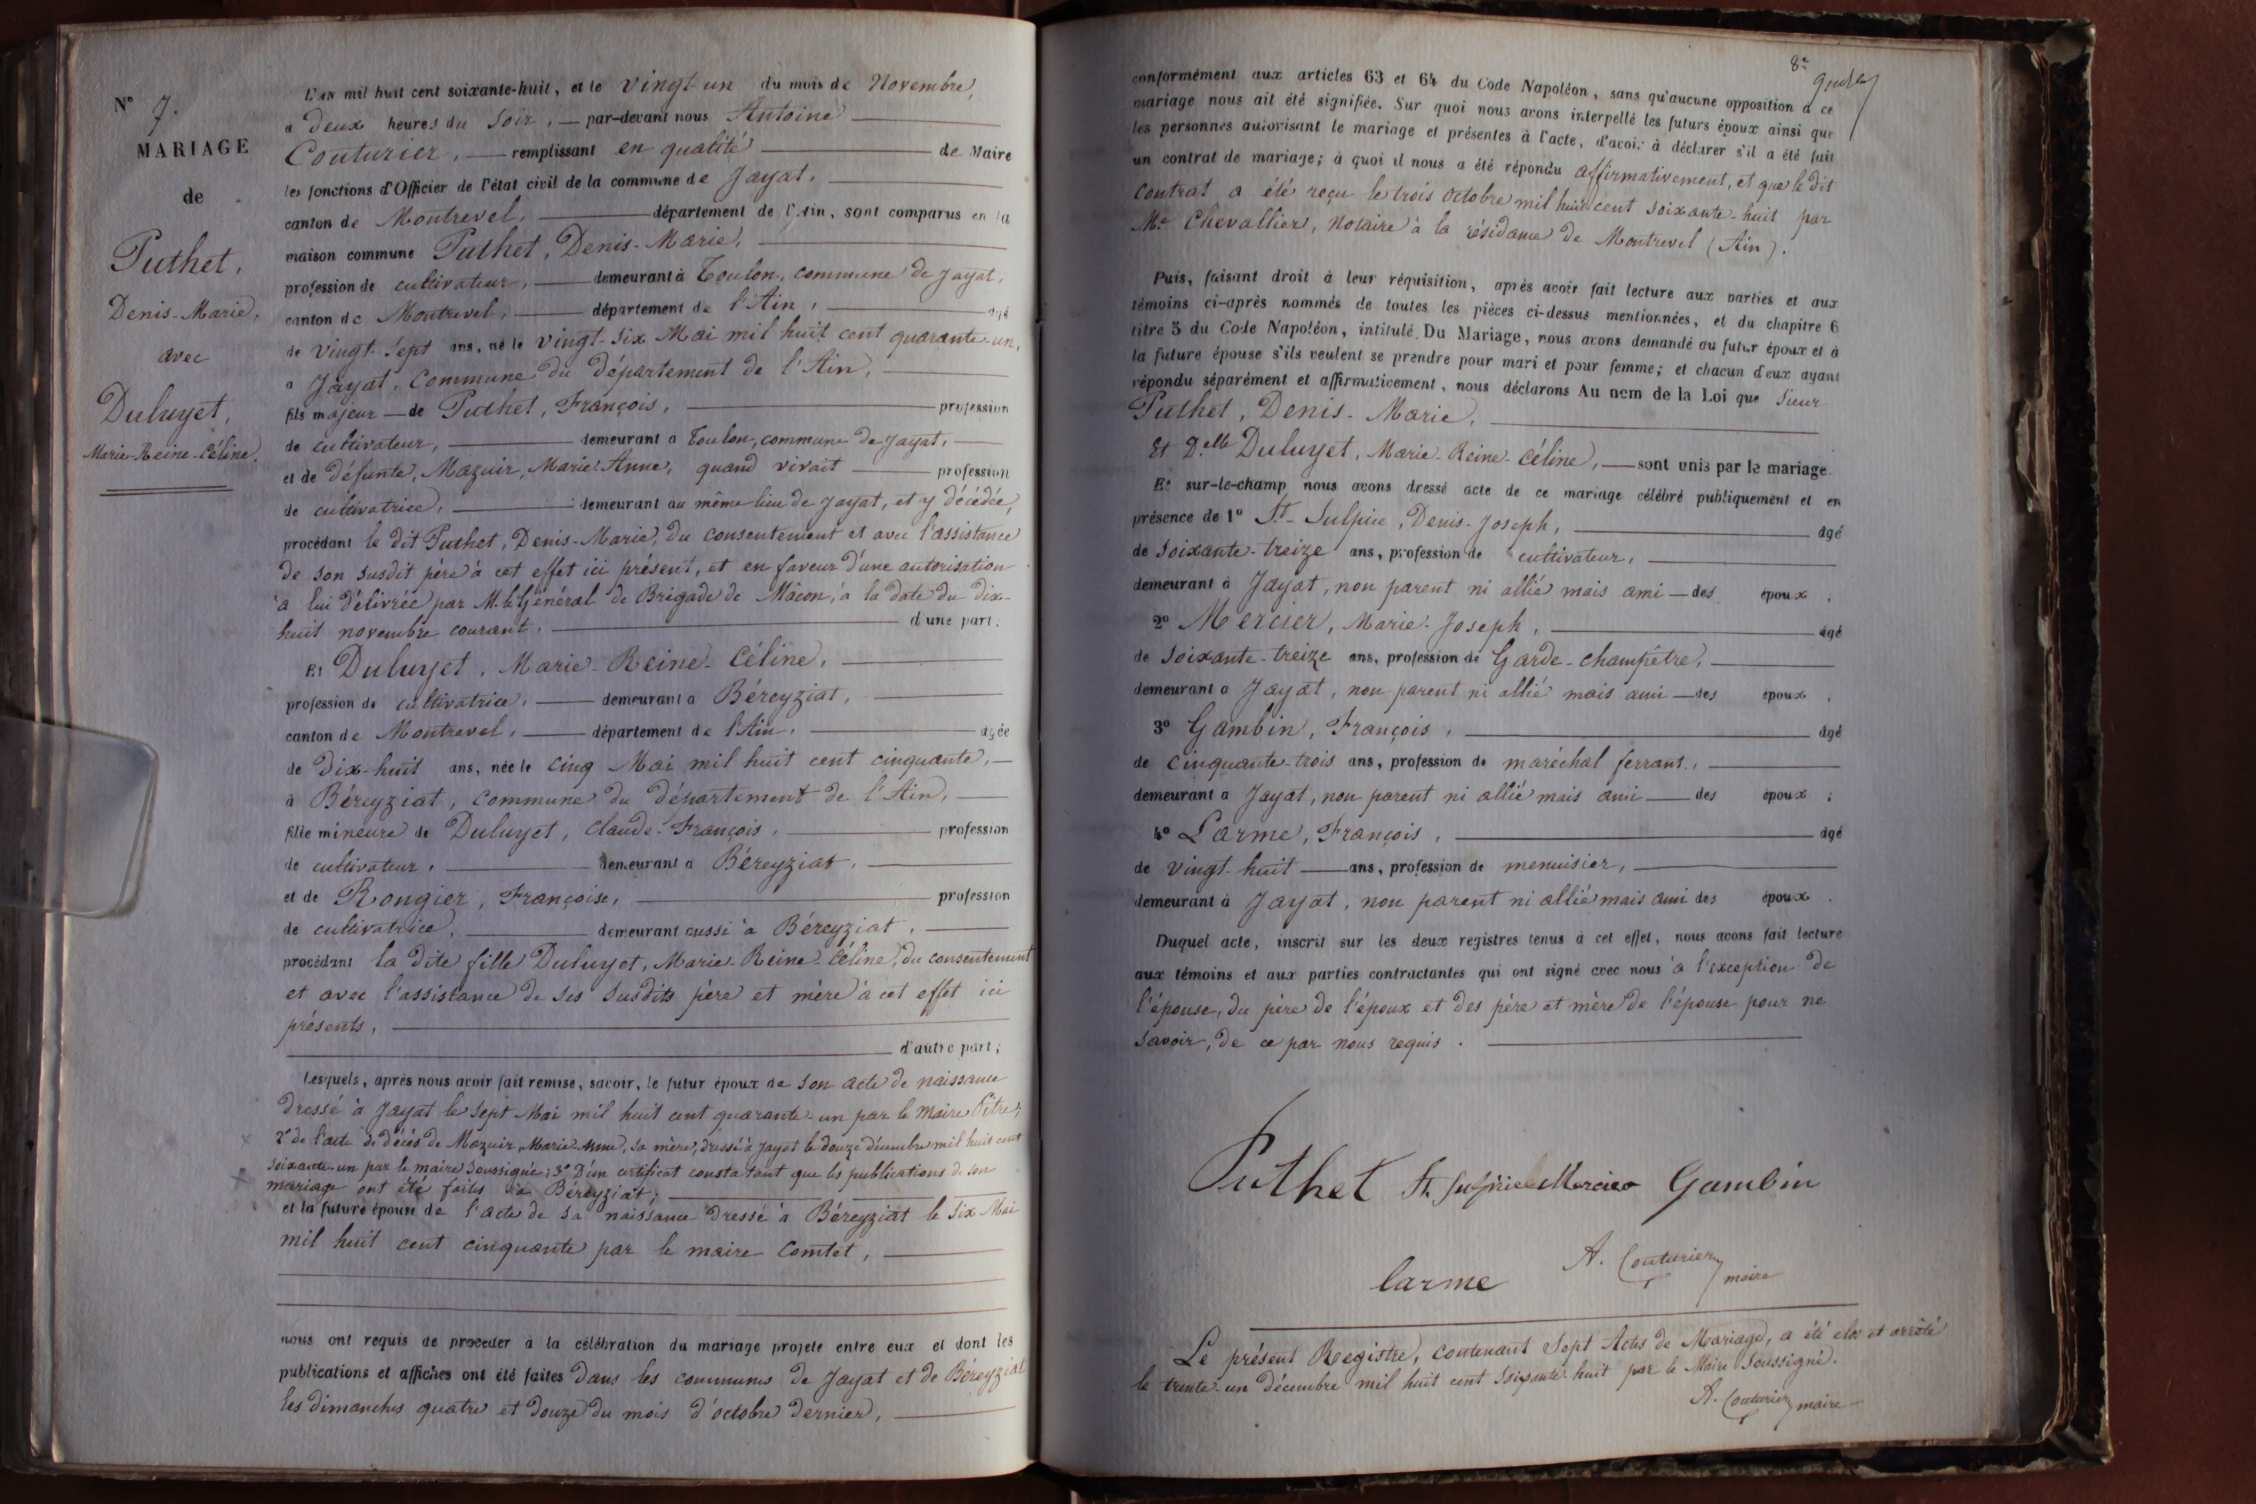 N° 7.
MARIAGE
de
Puthet,
Denis-Marie,
avec
Duluyet,
Marie-Reine-Céline.
L'an mil huit cent soixante-huit, et le vingt-un du mois de Novembre,
à deux heures du soir, par-devant nous Antoine
Couturier, remplissant en qualité de Maire
les fonctions d'Officier de l'état civil de la commune de Jayat,
canton de Montrevel, département de l'Ain, sont comparus en la
maison commune Puthet, Denis-Marie,
profession de cultivateur, demeurant à Toulon, commune de Jayat,
canton de Montrevel, département de l'Ain, agé
de vingt-sept ans, né le vingt-six Mai mil huit cent quarante-un,
à Jayat, commune du département de l'Ain,
fils majeur de Puthet, François, profession
de cultivateur, demeurant à Toulon, commune de Jayat,
et de défunte, Mazuir, Marie-Anne, quand vivait profession
de cultivatrice, demeurant au même lieu de Jayat, et y décédée,
procédant le dit Puthet, Denis-Marie, du consentement et avec l'assistance
de son susdit père à cet effet ici présent, et en faveur d'une autorisation
à lui délivrée par M. le Général de Brigade de Mâcon, à la date du dix-
huit novembre courant, d'une part.
Et Duluyet, Marie-Reine-Céline,
profession de cultivatrice, demeurant à Béreyziat,
canton de Montrevel, département de l'Ain, agée
de dix-huit ans, née le cinq Mai mil huit cent cinquante,
à Béreyziat, commune du département de l'Ain,
fille mineure de Duluyet, Claude-François, profession
de cultivateur, demeurant à Béreyziat,
et de Rongier, Françoise, profession
de cultivatrice, demeurant aussi à Béreyziat,
procédant la dite fille Duluyet, Marie-Reine-Céline, du consentement
et avec l'assistance de ses susdits père et mère à cet effet ici
présents,
d'autre part;
Lesquels, après nous avoir fait remise, savoir, le futur époux de son acte de naissance
dressé à Jayat le sept Mai mil huit cent quarante-un par le maire Pitre;
2° de l'acte de décès de Mazuir, Marie-Anne, sa mère, dressé à Jayat le douze décembre mil huit cent
soixante-un par le maire soussigné; 3° D'un certificat constatant que les publications de son
mariage ont été faites à Béreyziat;
et la future épouse de l'acte de sa naissance dressé à Béreyziat le six Mai
mil huit cent cinquante par le maire Comtet,
nous ont requis de procéder à la célébration du mariage projeté entre eux et dont les
publications et affiches ont été faites dans les communes de Jayat et de Béreyziat
les dimanches quatre et douze du mois d'octobre dernier,
8e
conformément aux articles 63 et 64 du Code Napoléon, sans qu'aucune opposition à ce
mariage nous ait été signifiée. Sur quoi nous avons interpellé les futurs époux ainsi que
les personnes autorisant le mariage et présentes à l'acte, d'avoir à déclarer s'il a été fait
un contrat de mariage; à quoi il nous a été répondu affirmativement, et que le dit
contrat a été reçu le trois octobre mil huit cent soixante-huit par
Me Chevallier, Notaire à la résidance de Montrevel (Ain).
Puis, faisant droit à leur réquisition, après avoir fait lecture aux parties et aux
témoins ci-après nommés de toutes les pièces ci-dessus mentionnées, et du chapitre 6
titre 5 du Code Napoléon, intitulé Du Mariage, nous avons demandé au futur époux et à
la future épouse s'ils veulent se prendre pour mari et pour femme; et chacun d'eux ayant
répondu séparément et affirmativement, nous déclarons Au nom de la Loi que Sieur
Puthet, Denis-Marie,
Et D.elle Duluyet, Marie-Reine-Céline, sont unis par le mariage.
Et sur-le-champ nous avons dressé acte de ce mariage célébré publiquement et en
présence de 1° St-Sulpice, Denis-Joseph, agé
de soixante-treize ans, profession de cultivateur,
demeurant à Jayat, non parent ni allié mais ami des époux.
2° Mercier, Marie-Joseph, agé
de soixante-treize ans, profession de Garde-champêtre,
demeurant à Jayat, non parent ni allié mais ami des époux.
3° Gambin, François, agé
de cinquante-trois ans, profession de maréchal ferrant,
demeurant à Jayat, non parent ni allié mais ami des époux;
4° Larme, François, agé
de vingt-huit ans, profession de menuisier,
demeurant à Jayat, non parent ni allié mais ami des époux.
Duquel acte, inscrit sur les deux registres tenus à cet effet, nous avons fait lecture
aux témoins et aux parties contractantes qui ont signé avec nous à l'exception de
l'épouse, du père de l'époux et des père et mère de l'épouse pour ne
savoir, de ce par nous requis.
Puthet St Sulpice Mercier Gambin
larme A. Couturier maire
Le présent Registre, contenant Sept Actes de Mariage, a été clos et arrêté
le trente-un décembre mil huit cent soixante-huit par le Maire soussigné.
A. Couturier maire